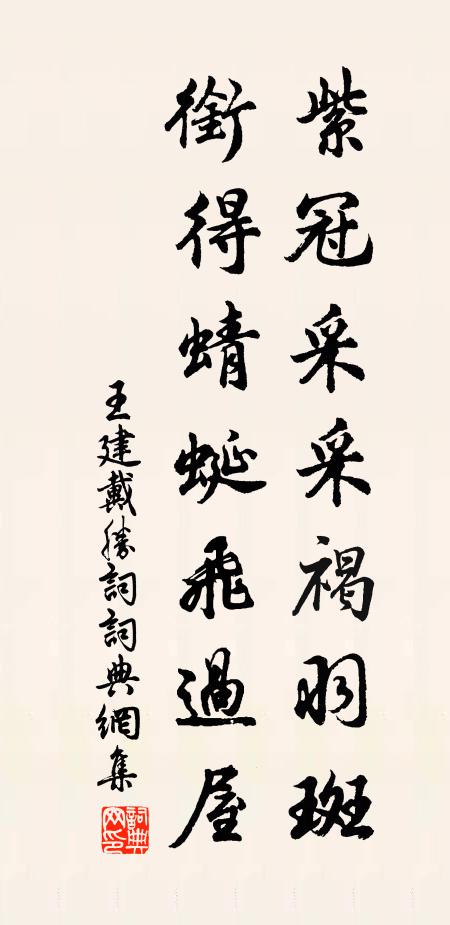 紫冠采采褐羽斑
銜得蜻蜓飛過屋
王建戴勝詞詞典網集
詞典網印